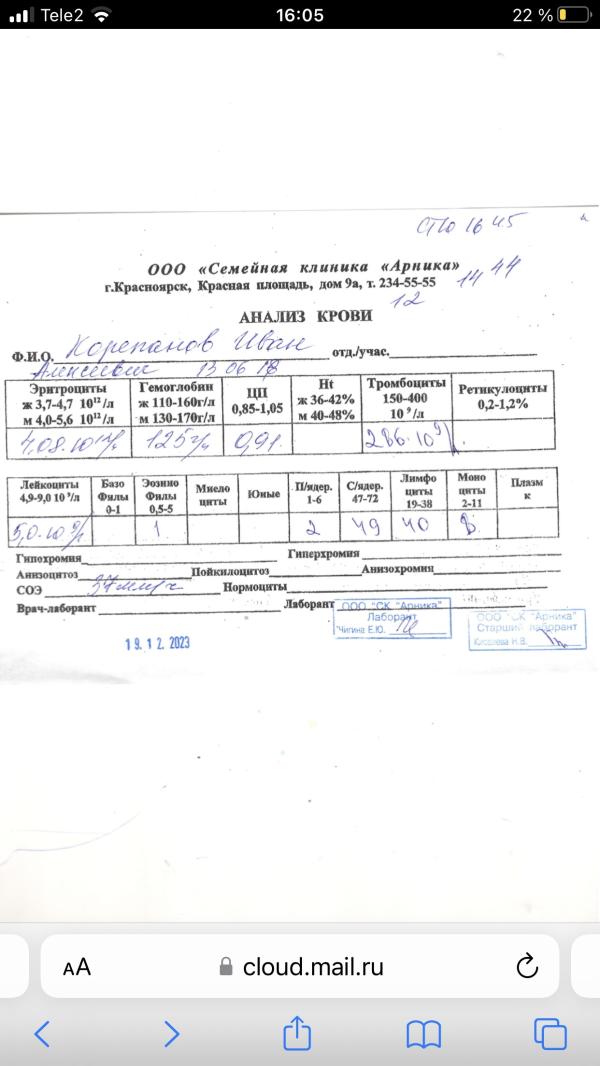 Tele2 16:05 22 %
СТЮ 16 45
ООО «Семейная клиника «Арника»
г.Красноярск, Красная площадь, дом 9а, т. 234-55-55
14 44
12
АНАЛИЗ КРОВИ
Ф.И.О. Корепанов Иван отд./учас.
Алексеевич 13 06 18
Эритроциты ж 3,7-4,7 10¹²/л м 4,0-5,6 10¹²/л
Гемоглобин ж 110-160г/л м 130-170г/л
ЦП 0,85-1,05
Ht ж 36-42% м 40-48%
Тромбоциты 150-400 10 ⁹ /л
Ретикулоциты 0,2-1,2%
4,08·10¹²/л 125 г/л 0,91 286·10⁹/л
Лейкоциты 4,9-9,0 10 ⁹/л
Базо Филы 0-1
Эозино Филы 0,5-5
Миело циты
Юные
П/ядер. 1-6
С/ядер. 47-72
Лимфо циты 19-38
Моно циты 2-11
Плазм к
5,0·10⁹/л 1 2 49 40 8
Гипохромия Гиперхромия
Анизоцитоз Пойкилоцитоз Анизохромия
СОЭ 37 мм/ч Нормоциты
Врач-лаборант Лаборант
ООО "СК "Арника"
Лаборант
Чигина Е.Ю.
ООО "СК "Арника"
Старший лаборант
Киселева Н.В.
19.12.2023
AA cloud.mail.ru